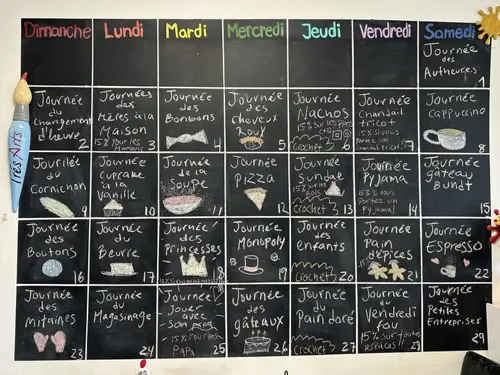 Dimanche Lundi Mardi Mercredi Jeudi Vendredi Samedi
Journée
des
Autheur.e.s
1
Très Arts
Journée
du
Changement
d'heure
2
Journées
des
Mères à la
Maison
15% pour les
Mamans
3
Journée
des
Bonbons
4
Journée
des
cheveux
Roux
5
Journée
des
Nachos
15% si vous
Crochet
6
Journée
Chandail
tricot
15% si vous
Portez un
tricot
7
Journée
Cappuccino
8
Journée
du
Cornichon
9
Journée
cupcake
à la
Vanille
10
Journée
de la
Soupe
11
Journée
Pizza
12
Journée
Sundae
15% sur
Crochet
13
Journée
Pyjama
15% si vous
Portez un
Pyjama!
14
Journée
gâteau
Bundt
15
Journée
des
Boutons
16
Journée
du
Beurre
17
Journée
des
Princesses
18
Journée
Monopoly
19
Journée
des
enfants
Crochet
20
Journée
Pain
d'épices
21
Journée
Espresso
22
Journée
des
mitaines
23
Journée
du
Magasinage
24
Journée
Jouer avec
son papa
15% pour les
Papa
25
Journée
des
gâteaux
26
Journée
du
Pain doré
Crochet
27
Journée
du
Vendredi
fou
15% sur toutes
28
Journée
des
Petites
Entreprises
29